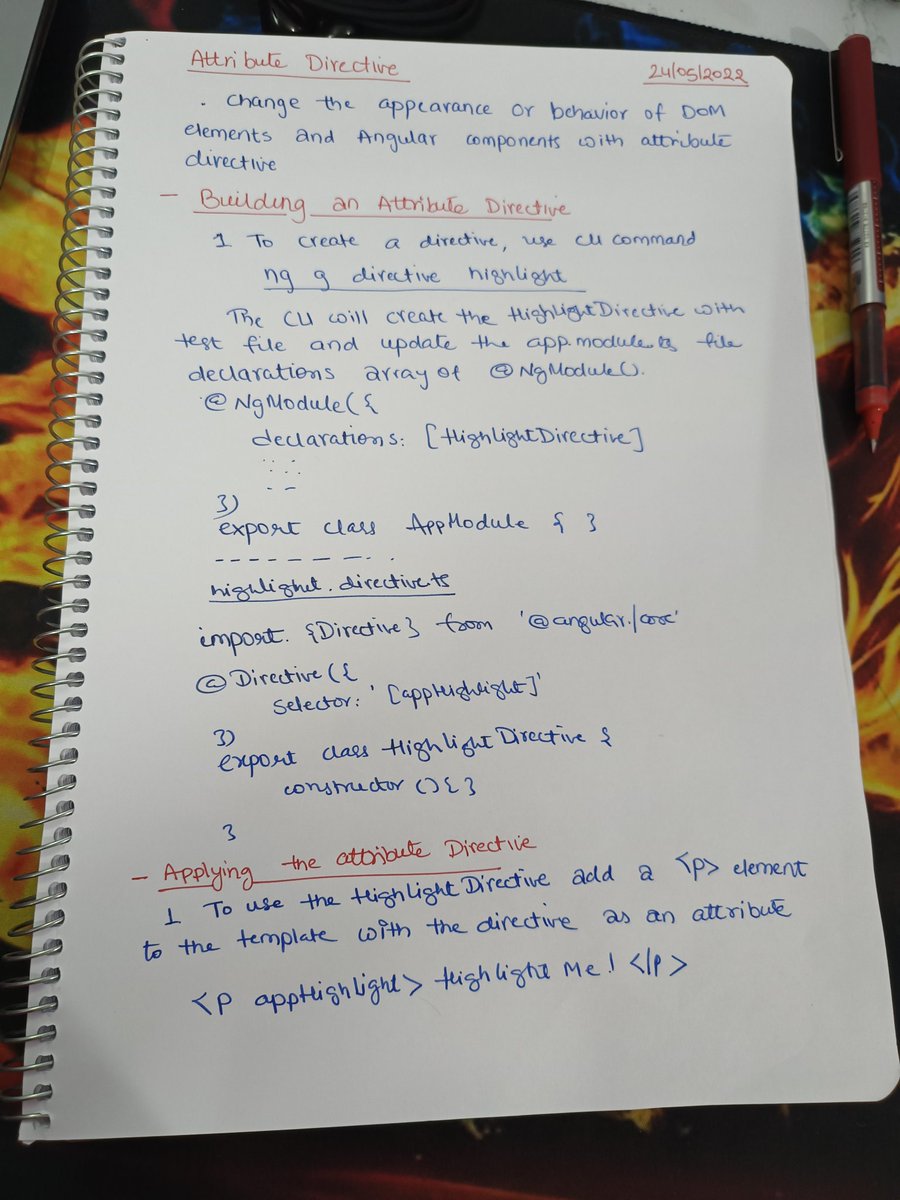 Attribute Directive
24/05/2022
. Change the appearance or behavior of DOM
elements and Angular components with attribute
directive
- Building an Attribute Directive
1 To create a directive, use CLI command
ng g directive highlight
The CLI will create the HighlightDirective with
test file and update the app.module.ts file
declarations array of @NgModule().
@NgModule({
declarations: [HighlightDirective]
})
export class AppModule { }
highlight.directive.ts
import {Directive} from '@angular/core'
@Directive({
Selector: '[appHighlight]'
})
export class HighlightDirective {
constructor () { }
}
- Applying the attribute Directive
1 To use the HighlightDirective add a <p> element
to the template with the directive as an attribute
<p appHighlight> Highlight Me! </p>